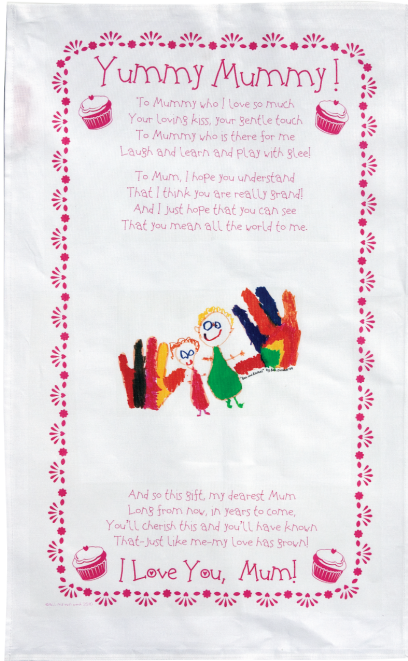 Yummy Mummy!
To Mummy who I love so much
Your loving kiss, your gentle touch
To Mummy who is there for me
Laugh and learn and play with glee!
To Mum, I hope you understand
That I think you are really grand!
And I just hope that you can see
That you mean all the world to me.
And so this gift, my dearest Mum
Long from now, in years to come,
You'll cherish this and you'll have known
That-just like me-my love has grown!
I Love You, Mum!